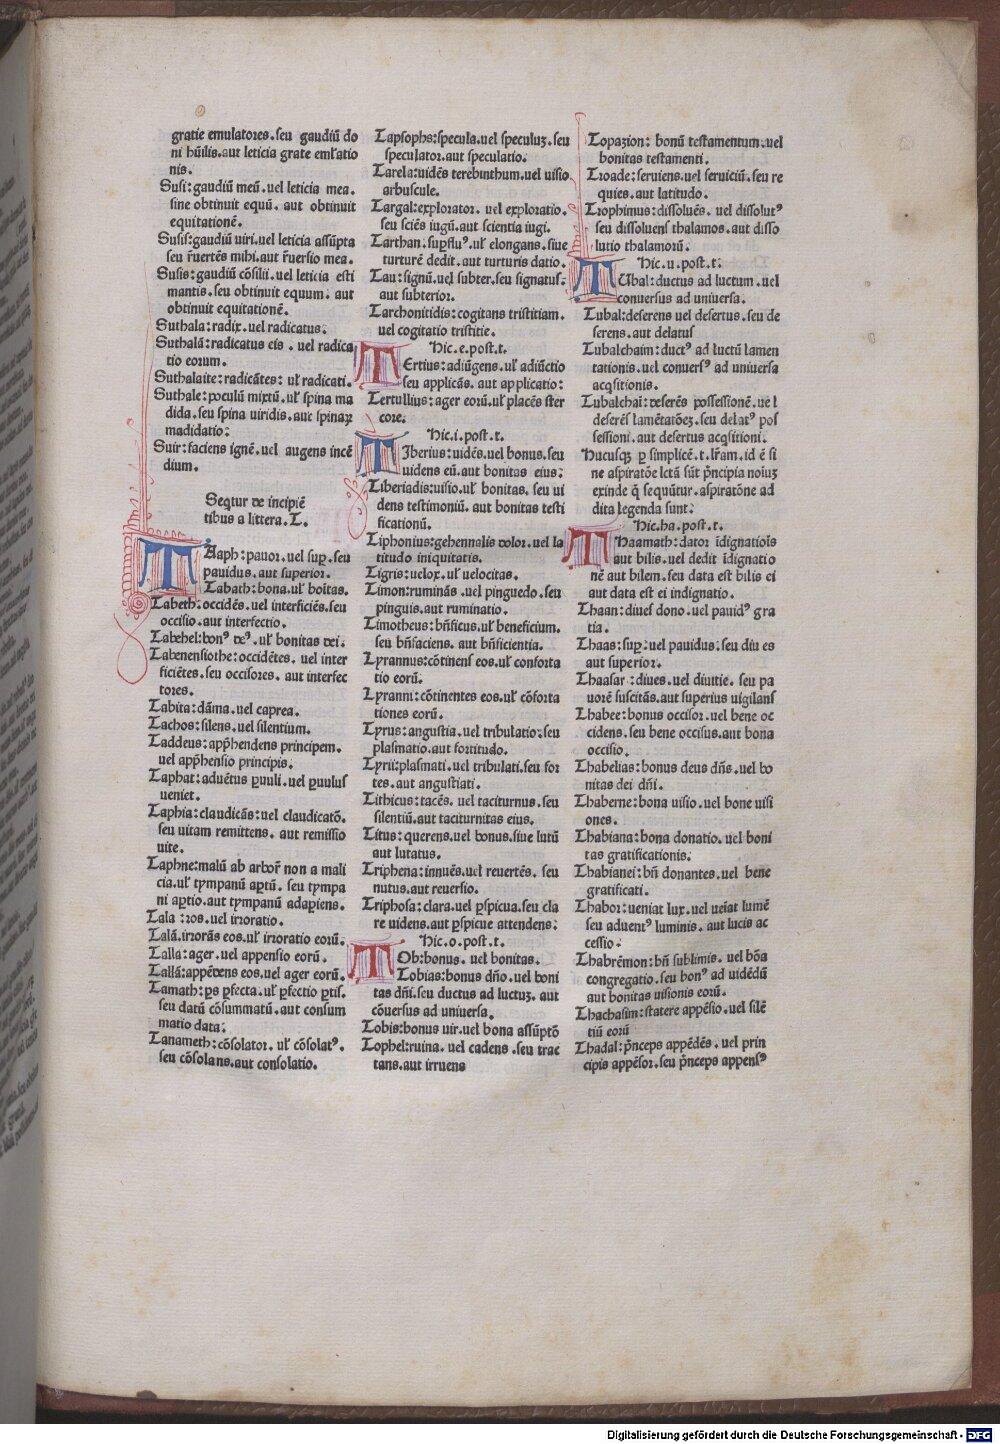 gratie emulatores.seu gaudiū do
ni hūilis.aut leticia grate emłatio
nis.
Susi:gaudiū meū.uel leticia mea.
sine obtinuit equū. aut obtinuit
equitationē.
Susis:gaudiū uiri.uel leticia assūpta
seu r̄uertēs mihi.aut r̄uersio mea.
Susis:gaudiū cōsilii.uel leticia esti
mantis.seu obtinuit equum. aut
obtinuit equitationē.
Suthala:radix.uel radicatus.
Suthalā:radicatus eis . uel radica
tio eorum.
Suthalaite:radicātes: uł radicati.
Suthale:poculū mixtū.uł spina ma
dida.seu spina uiridis.aut spinaꝝ
madidatio:
Suir:faciens ignē.uel augens incē
dium.
Seqtur de incipiē
tibus a littera.T.
TAaph:pauor.uel suꝑ.seu
pauidus.aut superior.
Tabath:bona.uł boītas.
Tabeth:occidēs.uel interficiēs.seu
occisio.aut interfectio.
Tabehel:bonꝰ deꝰ.uł bonitas dei.
Tabenensiothe:occidētes. uel inter
ficiētes.seu occisores. aut interfec
tores.
Tabita:dāma.uel caprea.
Tachos:silens.uel silentium.
Taddeus:app̄hendens principem.
uel app̄hensio principis.
Taphat:aduētus ꝑuuli.uel ꝑuulus
ueniet.
Taphia:claudicās:uel claudicatō.
seu uitam remittens. aut remissio
uite.
Taphne:malū ab arbor̄ non a mali
cia.uł tympanū aꝑtū. seu tympa
ni aꝑtio.aut tympanū adaꝑiens.
Tala :ros.uel irroratio.
Talā.irrorās eos.uł irroratio eorū.
Talla:ager.uel appensio eorū.
Tallā:appēdens eos.uel ager eorū.
Tamath:ꝑs ꝑfecta.uł ꝑfectio ꝑtis.
seu datū cōsummatū.aut consum
matio data:
Tanameth:cōsolator. uł cōsolatꝰ.
seu cōsolans.aut consolatio.
Tapsophs:specula.uel speculuꝫ.seu
speculator.aut speculatio.
Tarela:uidēs terebinthum.uel uisio
arbuscule.
Targal:explorator. uel exploratio.
seu sciēs iugū.aut scientia iugi.
Tarthan.suꝑfluꝰ.uł elongans.siue
turturē dedit.aut turturis datio.
Tau:signū.uel subter.seu signatus.
aut subterior.
Tarchonitidis:cogitans tristitiam.
uel cogitatio tristitie.
Hic.e.post.t.
TErtius:adiūgens.uł adiūctio
seu applicās. aut applicatio:
Tertullius:ager eorū.uł placēs ster
core.
Hic.i.post.t.
TIberius:uidēs.uel bonus.seu
uidens eū.aut bonitas eius:
Tiberiadis:uisio.uł bonitas. seu ui
dens testimoniū. aut bonitas testi
ficationū.
Tiphonius:gehennalis dolor.uel la
titudo iniquitatis.
Tigris:uelox.uł uelocitas.
Timon:ruminās.uel pinguedo.seu
pinguis.aut ruminatio.
Timotheus:bn̄ficus.uł beneficium.
seu bn̄faciens. aut bn̄ficientia.
Tyrannus:cōtinens eos.uł conforta
tio eorū.
Tyranni:cōtinentes eos.uł cōforta
tiones eorū.
Tyrus:angustia.uel tribulatio:seu
plasmatio.aut fortitudo.
Tyrii:plasmati.uel tribulati.seu for
tes.aut angustiati.
Tithicus:tacēs. uel taciturnus.seu
silentiū.aut taciturnitas eius.
Titus:querens.uel bonus.siue lutū
aut lutatus.
Triphena:innuēs.uel reuertēs. seu
nutus.aut reuersio.
Triphosa:clara.uel ꝑspicua.seu cla
re uidens.aut ꝑspicue attendens:
Hic.o.post.t.
TOb:bonus. uel bonitas.
Tobias:bonus dn̄o.uel boni
tas dn̄i.seu ductus ad luctuꝫ. aut
cōuersus ad uniuersa.
Tobis:bonus uir.uel bona assūptō
Tophel:ruina. uel cadens .seu trac
tans.aut irruens
Topazion: bonū testamentum.uel
bonitas testamenti.
Troade:seruiens.uel seruiciū.seu re
quies.aut latitudo.
Trophimus:dissoluēs. uel dissolutꝰ
seu dissoluens thalamos.aut disso
lutio thalamorū.
Hic.u.post.t:
TUbal:ductus ad luctum.uel
conuersus ad uniuersa.
Tubal:deserens uel desertus.seu de
serens.aut delatus
Tubalchaim:ductꝰ ad luctū lamen
tationis.uel conuersꝰ ad uniuersa
acqsitionis.
Tubalchai:deserēs possessionē.uel
deserēs lamētatōeꝫ.seu delatꝰ pos
sessioni.aut desertus acqsitioni.
Hucusqꝫ ꝑ simplicē.t.lr̄am.id ē si
ne aspiratōe lctā sūt pn̄cipia noiuꝫ
exinde q̄ sequūtur.aspiratōne ad
dita legenda sunt:
Hic.ha.post.t.
THaamath:dator īdignatiois
aut bilis.uel dedit īdignatio
nē aut bilem.seu data est bilis ei
aut data est ei indignatio.
Thaan:diues dono.uel pauidꝰ gra
tia.
Thaas:suꝑ:uel pauidus:seu diu es
aut superior.
Thaasar :diues.uel diuitie. seu pa
uorē suscitās.aut superius uigilans
Thabee:bonus occisor.uel bene oc
cidens.seu bene occisus.aut bona
occisio.
Thabelias:bonus deus dn̄s.uel bo
nitas dei dn̄i.
Thaberne:bona uisio.uel bone uisi
ones.
Thabiana:bona donatio.uel boni
tas gratificationis.
Thabianei:bn̄ donantes.uel bene
gratificati.
Thabor:ueniat lux.uel ueiat lumē
seu aduentꝰ luminis. aut lucis ac
cessio.
Thabrēmon:bn̄ sublimis. uel bōa
congregatio.seu bonꝰ ad uidēdū
aut bonitas uisionis eorū.
Thachasim:statere appēsio.uel silē
tiū eorū
Thadal:pn̄ceps appēdēs. uel prin
cipis appēsor.seu pn̄ceps appensꝰ
Digitalisierung gefördert durch die Deutsche Forschungsgemeinschaft - DFG